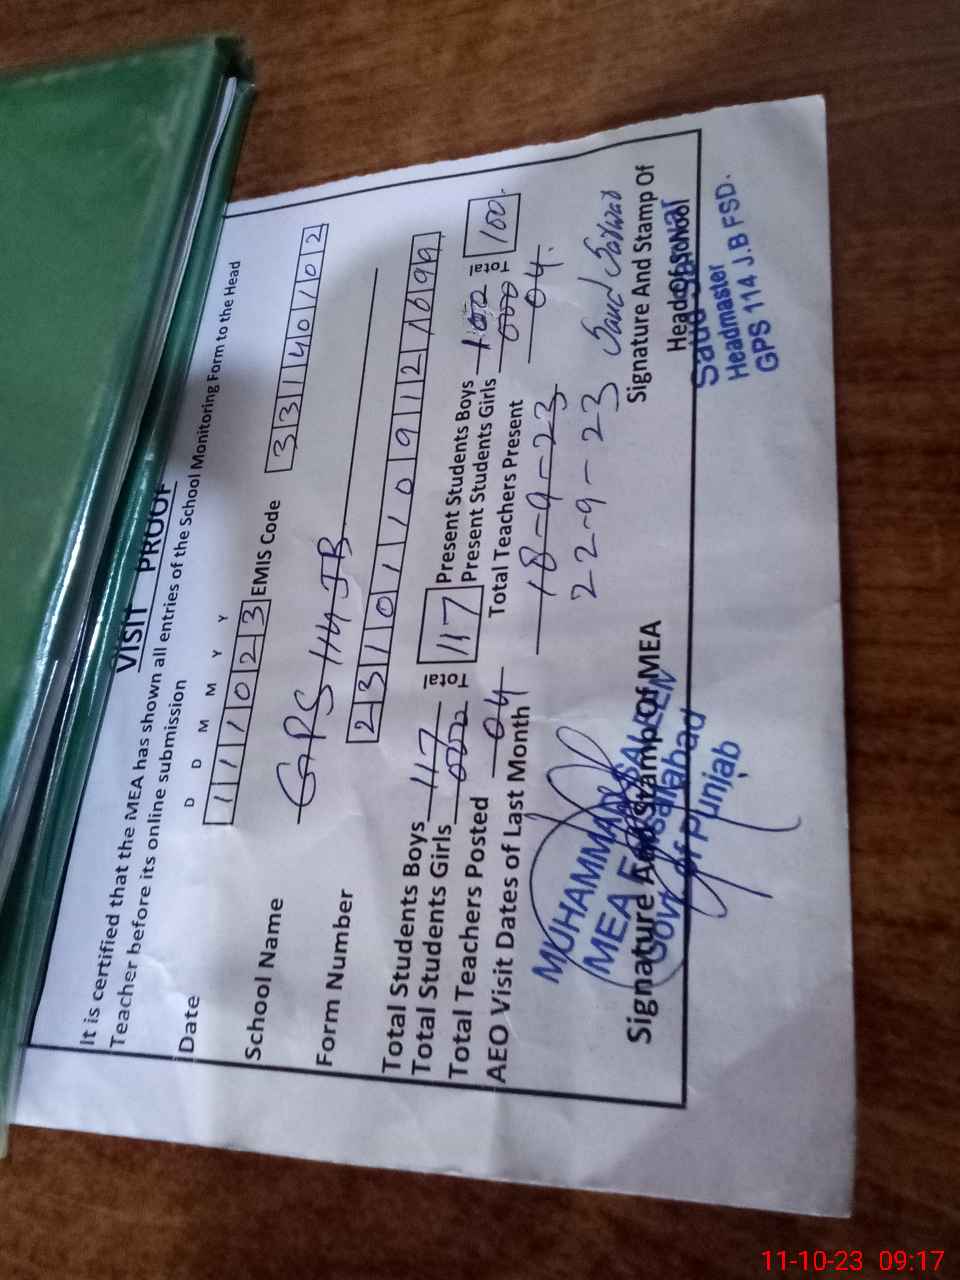 VISIT PROOF
It is certified that the MEA has shown all entries of the School Monitoring Form to the Head
Teacher before its online submission
D D M M Y Y
Date 111023 EMIS Code 33140102
School Name GPS 114 JB
Form Number 23101109121099
Total Students Boys 117 Total 117 Present Students Boys 100 Total 100
Total Students Girls 000 Present Students Girls 000
Total Teachers Posted 04 Total Teachers Present 04
AEO Visit Dates of Last Month 18-9-23
22-9-23
Saud Sarwar
MUHAMMAD SALEEN
MEA Faisalabad
Govt of Punjab
Signature And Stamp Of MEA
Signature And Stamp Of
Head Of School
Saud Sarwar
Headmaster
GPS 114 J.B FSD.
11-10-23 09:17